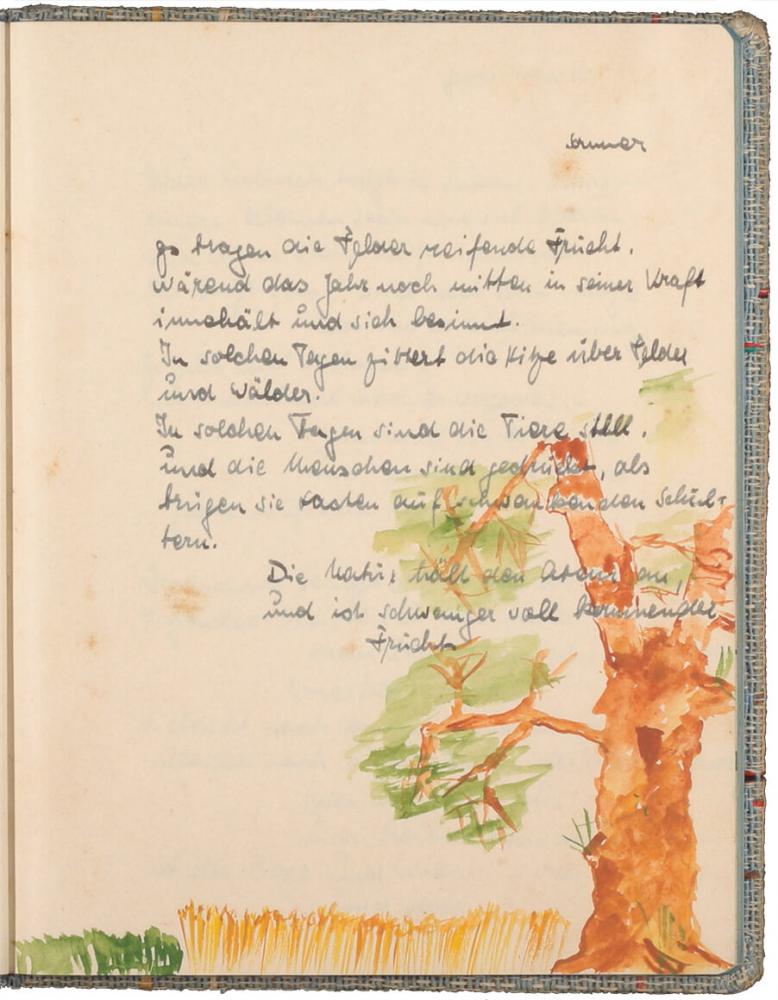 Sommer
So tragen die Felder reifende Frücht.
wärend das Jahr noch mitten in seiner Kraft
innehält und sich besinnt.
In solchen Tagen zittert die Hitze über Felder
und Wälder.
In solchen Tagen sind die Tiere still.
und die Menschen sind gedrückt, als
trügen sie Lasten auf schwankenden Schul-
tern.
Die Natur hält den Atem an,
und ist schwanger voll kommender
Frücht.